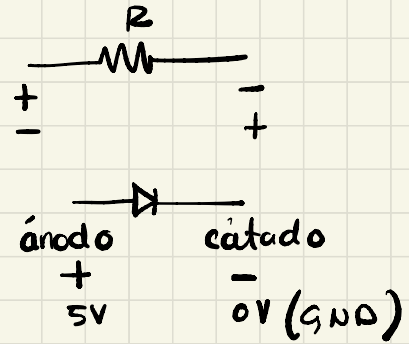 R
+ -
- +
ánodo cátado
+ -
5V 0V (GND)